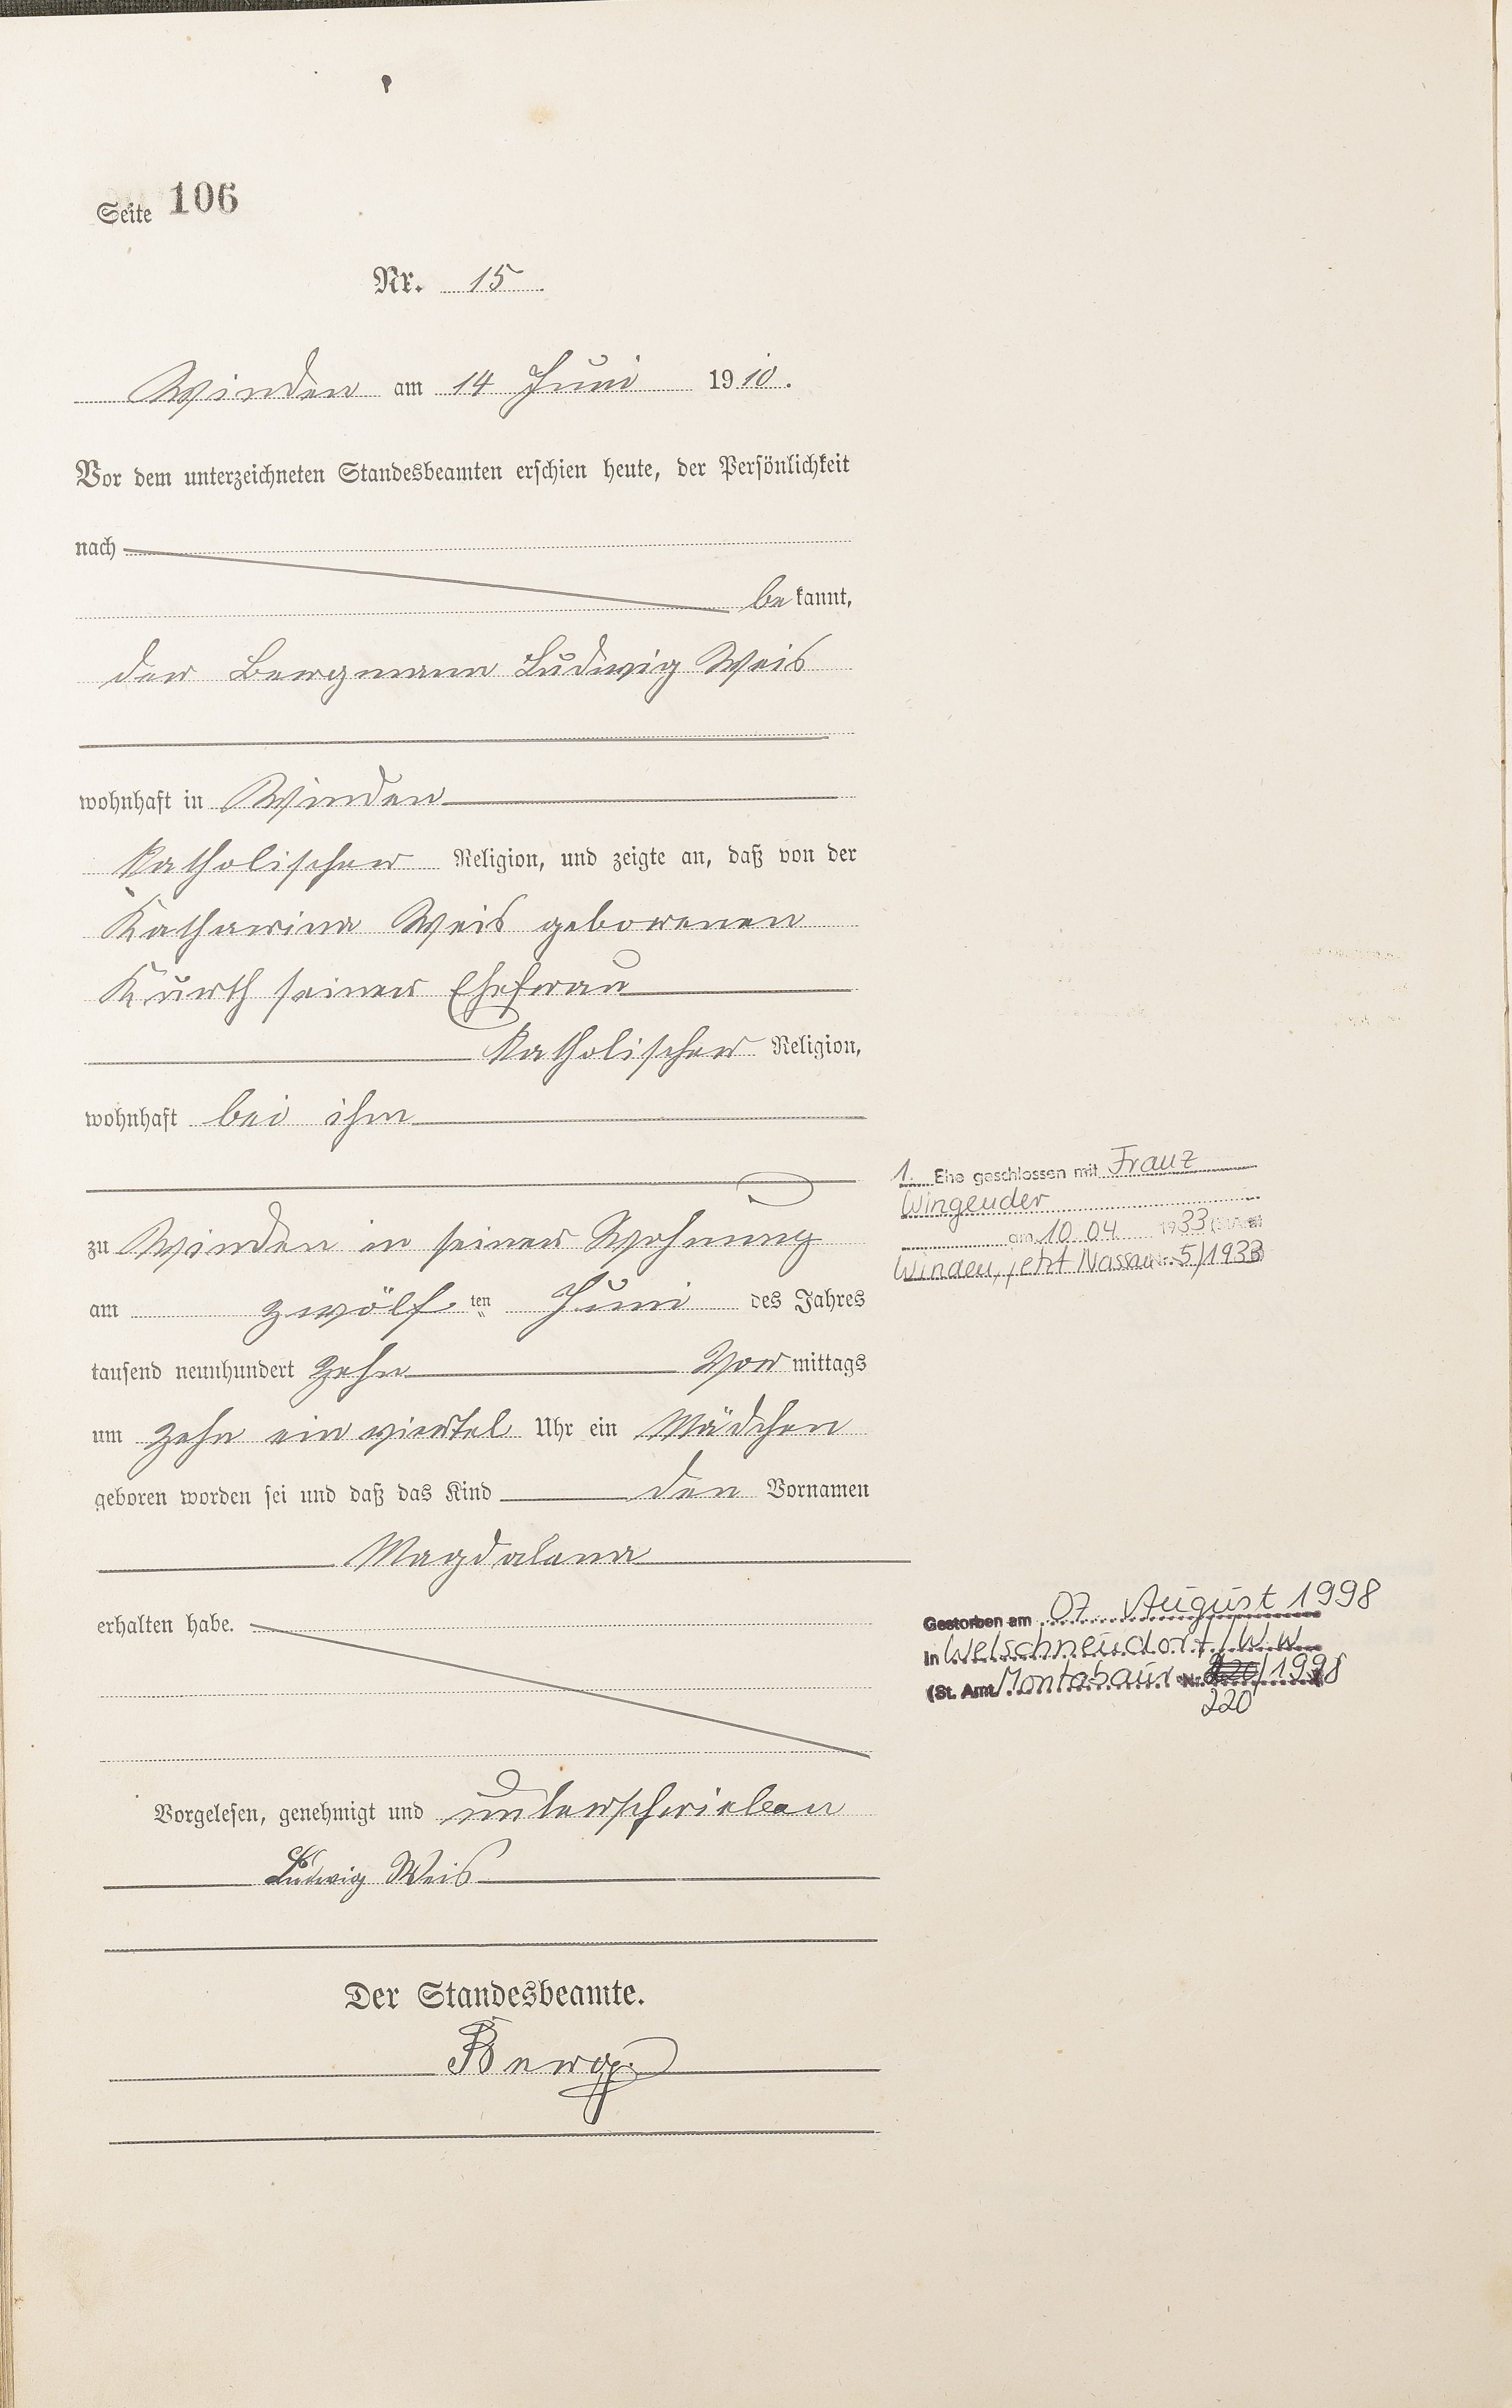 Seite 106
Nr. 15
Winden am 14 Juni 1910.
Vor dem unterzeichneten Standesbeamten erschien heute, der Persönlichkeit
nach
be kannt,
der Bergmann Ludwig Weis
wohnhaft in Winden
katholischer Religion, und zeigte an, daß von der
Katharina Weis geborenen
Kurth seiner Ehefrau
katholischer Religion,
wohnhaft bei ihm
zu Winden in seiner Wohnung
am zwölf ten Juni des Jahres
tausend neunhundert zehn Vor mittags
um zehn ein viertel Uhr ein Mädchen
geboren worden sei und daß das Kind den Vornamen
Magdalena
erhalten habe.
Vorgelesen, genehmigt und unterschrieben
Ludwig Weis
Der Standesbeamte.
Berg
1. Ehe geschlossen mit Franz
Wingender
am 10.04 1933 (St.Amt
Winden, jetzt Nassau Nr. 5/1933)
Gestorben am 07. August 1998
in Welschneudorf/Ww
(St. Amt Montabaur Nr. /1998
220